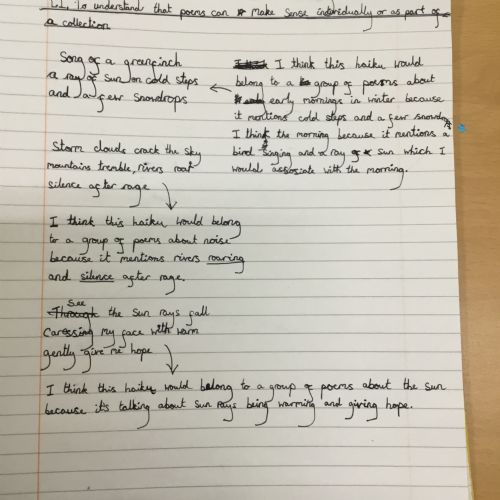 L.I. To understand that poems can make sense individually or as part of
a collection
Song of a greenfinch
a ray of sun on cold steps
and a few snowdrops
I think this haiku would
belong to a group of poems about
early mornings in winter because
it mentions cold steps and a few snowdrops
I think the morning because it mentions a
bird singing and a ray of sun which I
would assosiate with the morning.
Storm clouds crack the sky
mountains tremble, rivers roar
silence after rage
I think this haiku would belong
to a group of poems about noise
because it mentions rivers roaring
and silence after rage.
See
Through the sun rays fall
Caressing my face with warm
gently give me hope
I think this haiku would belong to a group of poems about the sun
because it's talking about sun rays being warming and giving hope.